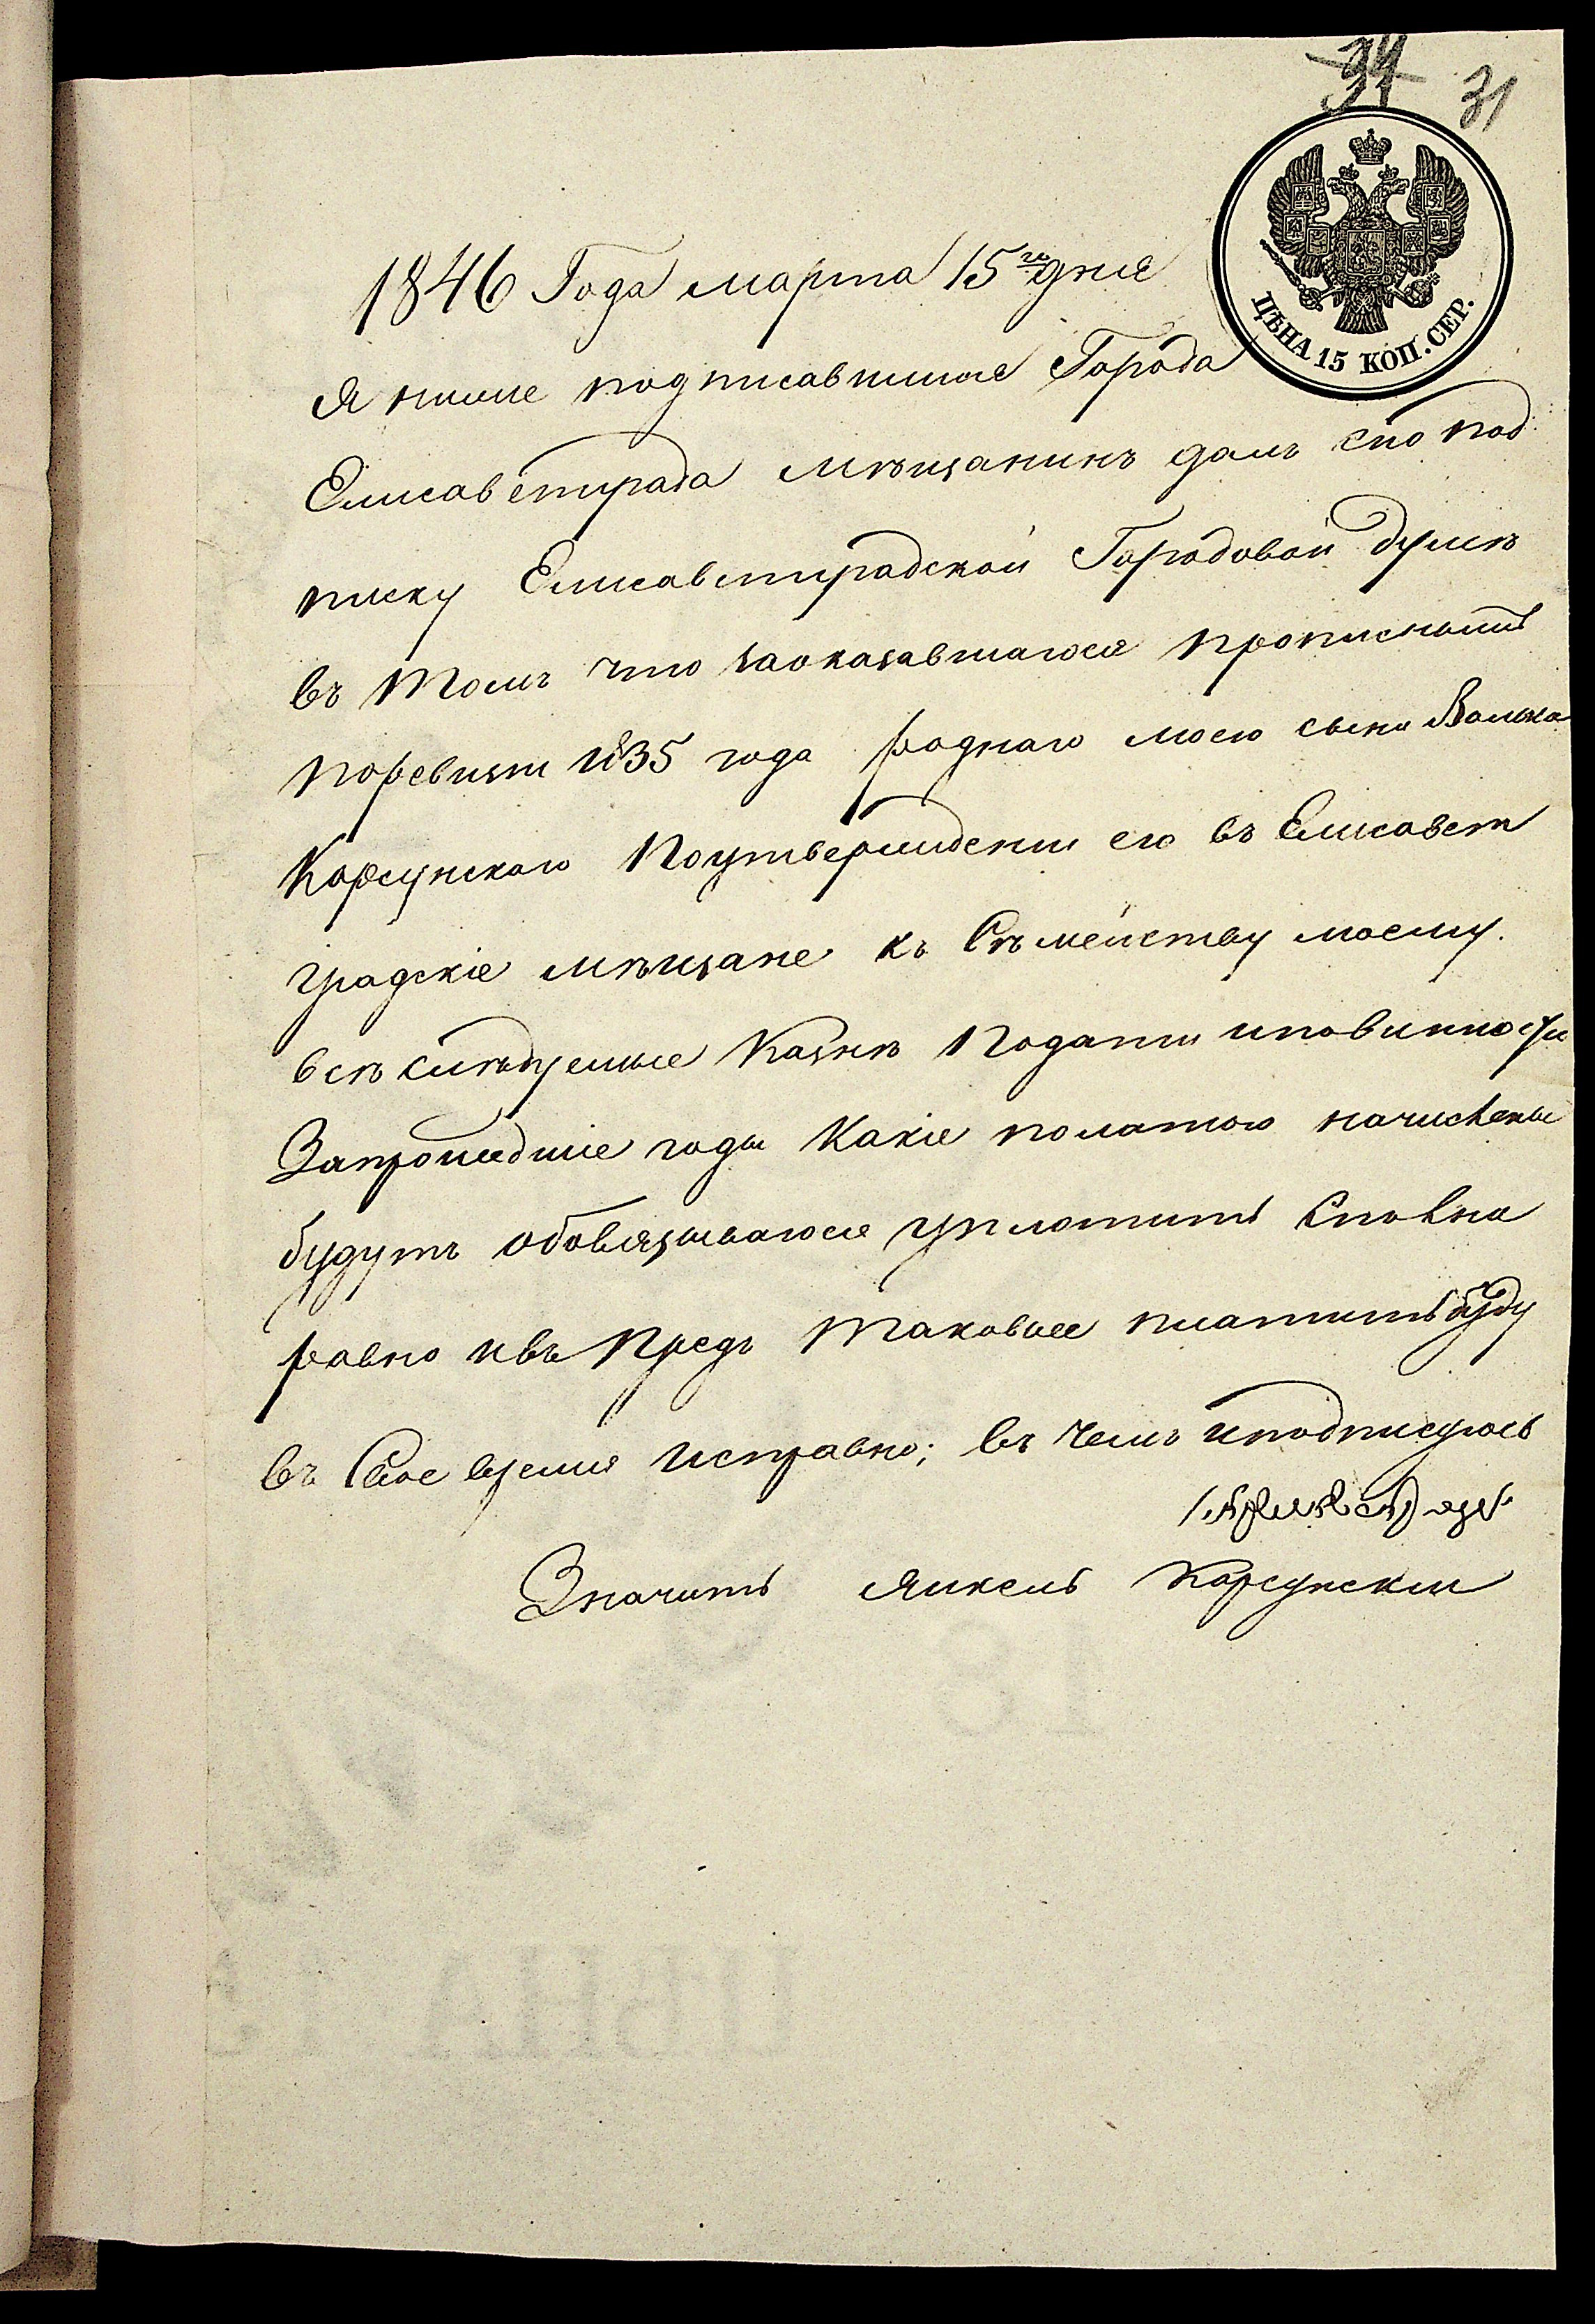 31
ЦѢНА 15 КОП. СЕР.
1846 Года марта 15го дня
Я ниже подписавшыйся Города
Елисаветграда мѣщанинъ далъ сію под
писку Елисаветградской Городовой думѣ
въ томъ что заоказавшагося прописнымъ
поревизіи 1835 года роднаго моего сына Волька
Корсунского Поутверждении его въ Елисавет
градскіе мѣщане къ Сѣмейству моему.
всѣ слѣдуемые Казнѣ Подати иповинности
Запрошедшіе годы Какіе полатою начислены
будутъ обовязываюся уплотить Сполна
равно ивъ Предъ Таковые платить буду
въ Свое время исправно; въ чемъ иподписуюсь
Значитъ Янкель Корсунскии